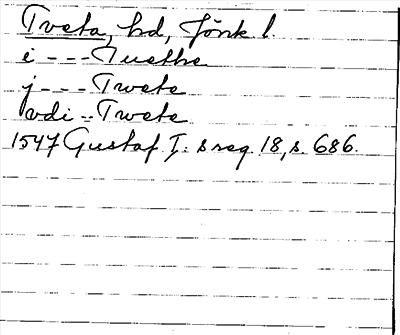 Tveta, hd, Jönk l.
i --- Tuethe
j --- Twete
vdi .. Twete
1547 Gustaf I: s reg. 18, s. 686.